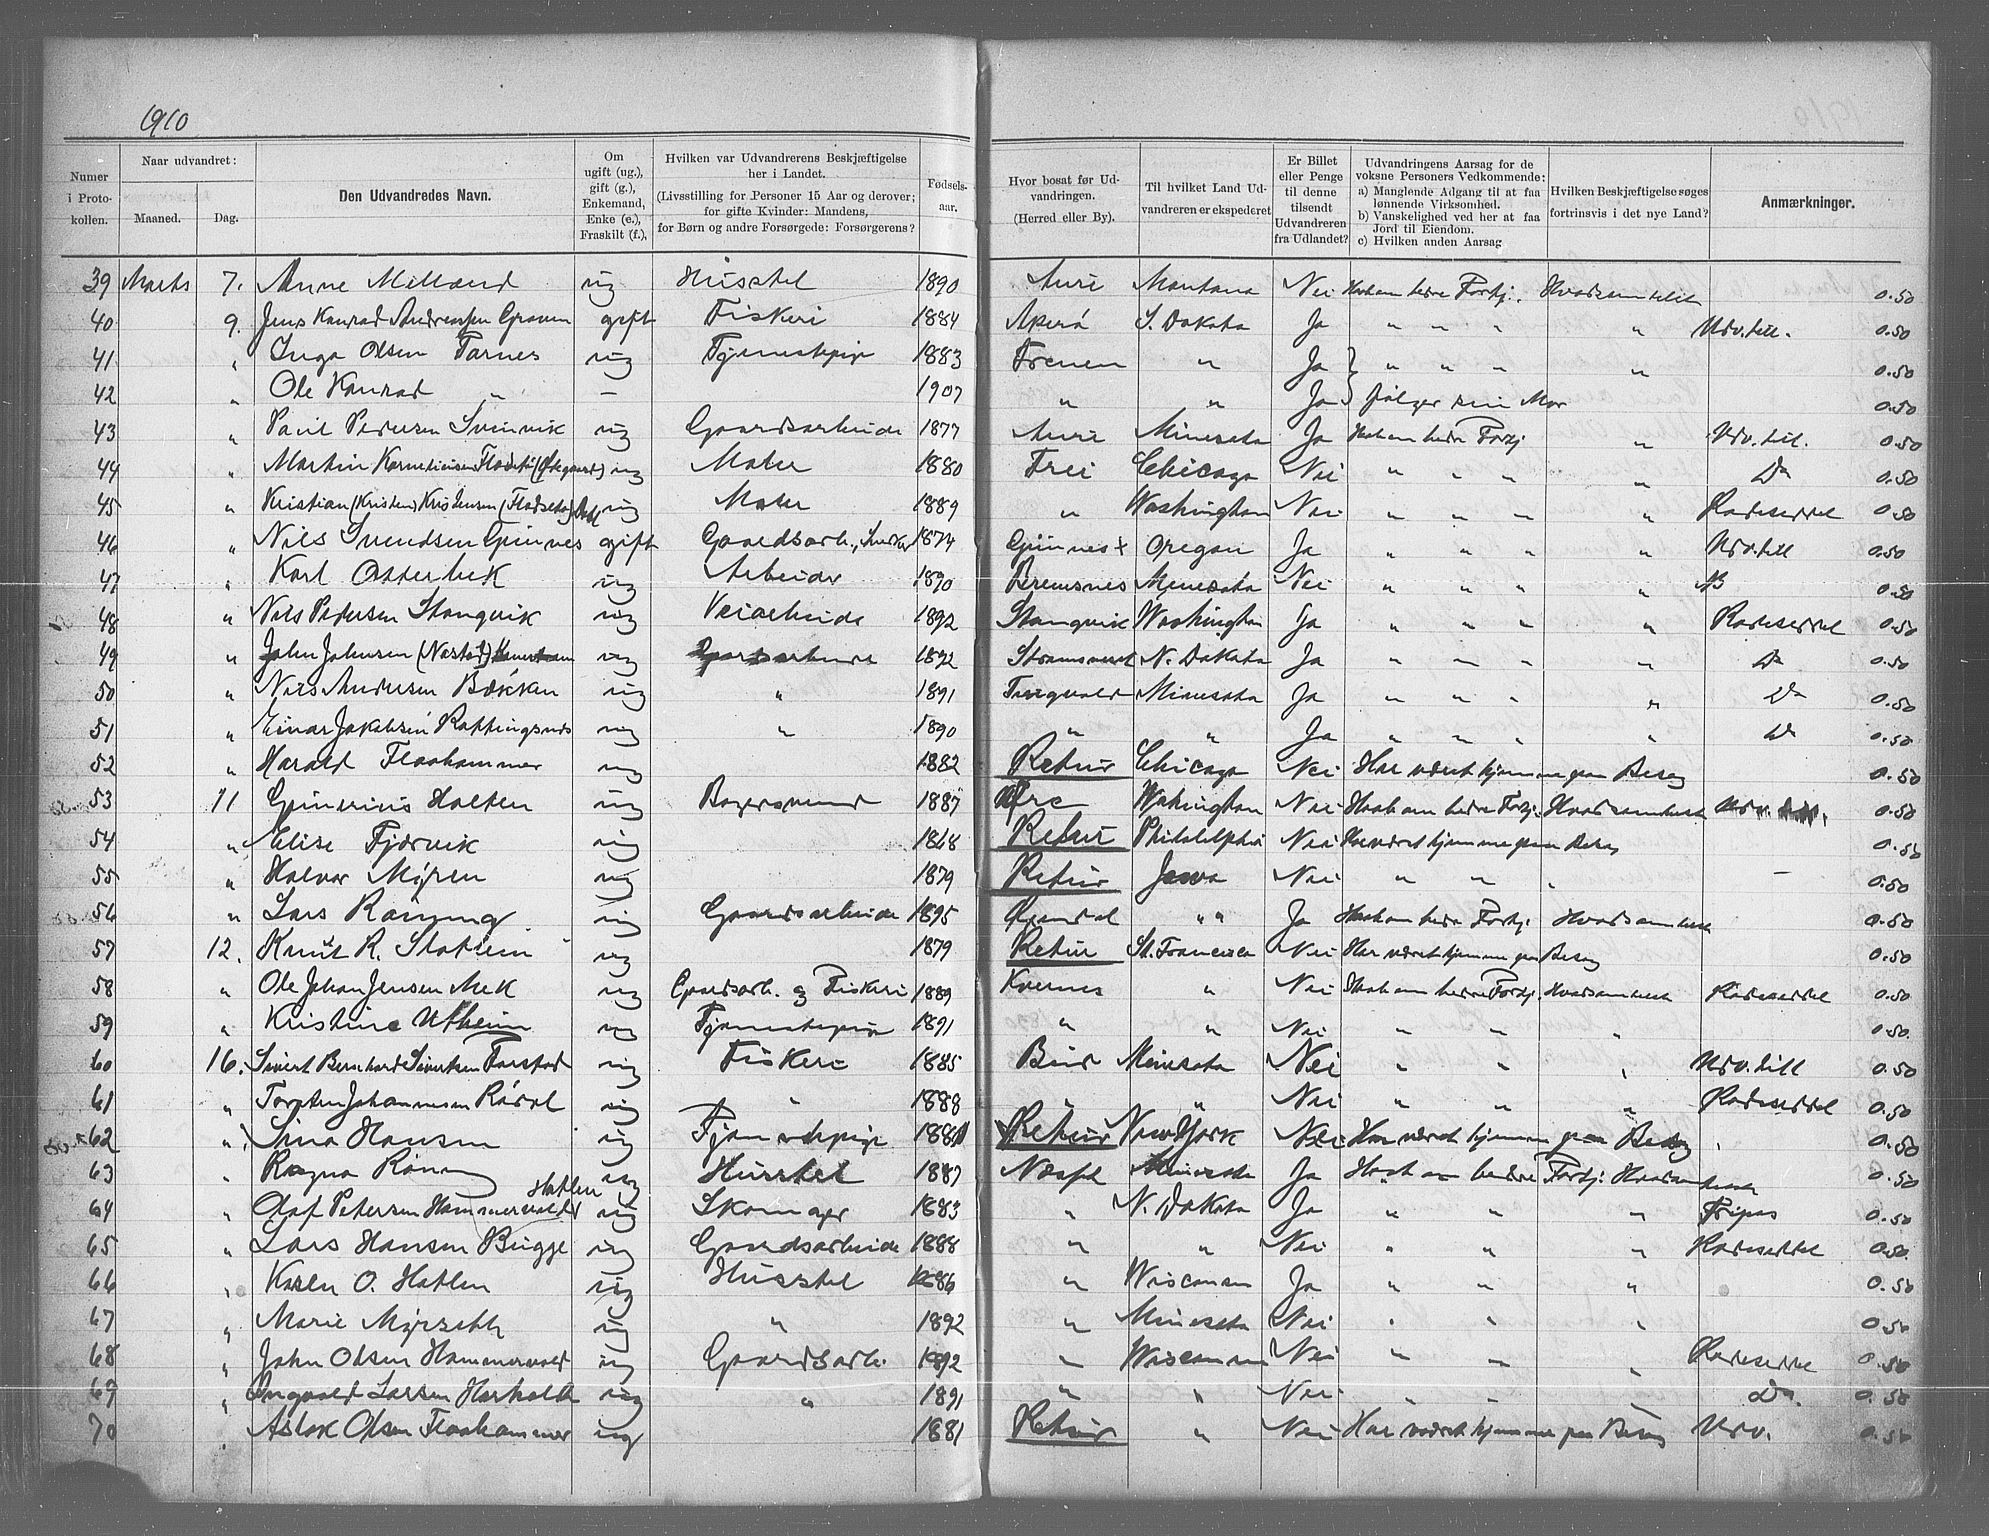 1910
Numer i Protokollen.
Naar udvandret:
Maaned.
Dag.
Den Udvandredes Navn.
Om ugift (ug.), gift (g.), Enkemand, Enke (e.), Fraskilt (f.),
Hvilken var Udvandrerens Beskjæftigelse her i Landet.
(Livsstilling for Personer 15 Aar og derover; for gifte Kvinder: Mandens, for Børn og andre Forsørgede: Forsørgerens?
Fødselsaar.
Hvor bosat før Udvandringen.
(Herred eller By).
Til hvilket Land Udvandreren er ekspederet
Er Billet eller Penge til denne tilsendt Udvandreren fra Udlandet?
Udvandringens Aarsag for de voksne Personers Vedkommende:
a) Manglende Adgang til at faa lønnende Virksomhed.
b) Vanskelighed ved her at faa Jord til Eiendom.
c) Hvilken anden Aarsag
Hvilken Beskjæftigelse søges fortrinsvis i det nye Land?
Anmærkninger.
39 Marts 7. Anne Melland ug Husstel 1890 Aure Montana Nei Haab om bedre Fortj. Hvadsomhelst 0.50
40 9. Jens Konrad Andreassen Graven gift Fiskeri 1884 Akerö S. Dakota Ja " " " " Udv.till. 0.50
41 " Inga Olsen Tarnes ug Tjenestepige 1883 Frenen " Ja " " " " 0.50
42 " Ole Konrad " – 1907 " " Ja følger sin Mor 0.50
43 " Paul Pedersen Svinvik ug Gaardsarbeide 1877 Aure Minesota Ja Haab om bedre Fortj " Udv.till. 0.50
44 " Martin Korneliussen Flodseter (Ødegaard) ug Maler 1880 Frei Chicago Nei " " " " Do 0.50
45 " Kristian (Kristen) Kristensen (Flodseter) ug Maler 1889 " Washington Nei " " " " Rodeseddel 0.50
46 " Nils Svendsen Gimnes gift Gaardsarb., Snedker 1874 Gimnes Oregon Ja " " " " Udv.till 0.50
47 " Karl Osterbek ug Arbeider 1890 Bremsnes Minesota Nei " " " " 0.50
48 " Nils Pedersen Stangvik ug Veiarbeide 1892 Stangvik Washington Ja " " " " Rodeseddel 0.50
49 " John Johnsen (Nastad) ug Gaardsarbeide 1892 N. Dakota Ja " " " " Do 0.50
50 " Nils Andersen Bækken ug " 1891 Tingvold Minesota Ja " " " " Do 0.50
51 " Einar Jakobsen Koppingsnes ug " 1890 " " Ja " " " " Do 0.50
52 " Harald Flaahammer ug 1882 Retur Chicago Nei Har været hjemme paa Besøg 0.50
53 11 Gunerius Holten ug Bagersvend 1887 Wahington Nei Haab om bedre Fortj. Hvadsomhelst Udv. 0.50
54 " Elise Fjørvik ug 1868 Retur Philadelphia Nei Har været hjemme paa Besøg 0.50
55 " Halvor Myren ug 1879 Retur Jowa Nei " " " – 0.50
56 " Lars Röning ug Gaardsarbeide 1895 " " Ja Haab om bedre Fortj. Hvadsomhelst 0.50
57 12. Knut R. Stokkem ug 1879 Retur St. Francisco Nei Har været hjemme paa Besøg 0.50
58 " Ole Johan Jensen Mek ug Gaardsarb. og Fiskeri 1889 Kvernes " Nei Haab om bedre Fortj. Hvadsomhelst Rodeseddel 0.50
59 " Kristine Utheim ug Tjenestepige 1891 " " Nei " " " 0.50.
60 16. Sivert Bernhard Sivertsen Farstad ug Fiskeri 1885 Bud Minesota Nei " " " Udv.till 0.50
61 " Torsten Johannesen Röshol ug " 1888 " " Nei " " " Rodeseddel 0.50
62 " Sina Hansen ug Tjenestepige 1881 Retur New York Nei Har været hjemme paa Besøg 0.50
63 " Ragna Röning ug Husstel 1887 Næsset Minesota Ja Haab om bedre Fortj. Hvadsomhelst 0.50
64 " Olaf Petersen Hammervolder Hatlen ug Skomager 1883 " N. Dakota Ja " " " Fripas 0.50
65 " Lars Hansen Bugge ug Gaardsarbeide 1888 " " Nei " " " Rodeseddel 0.50.
66 " Karen O. Hatlen ug Husstel 1886 " Wisconsin Ja " " " 0.50
67 " Marie Myrseth ug " 1892 " Minesota Nei " " " 0.50
68 " John Olsen Hammervold ug Gaardsarb. 1892 " Wisconsin Nei " " " Rodeseddel 0.50
69 " Ingvald Larsen ug " 1891 " " Nei " " " Do. 0.50
70 " Aslak Olsen Flaahammer ug 1881 Retur " Nei Har været hjemme paa Besøg Udv. 0.50